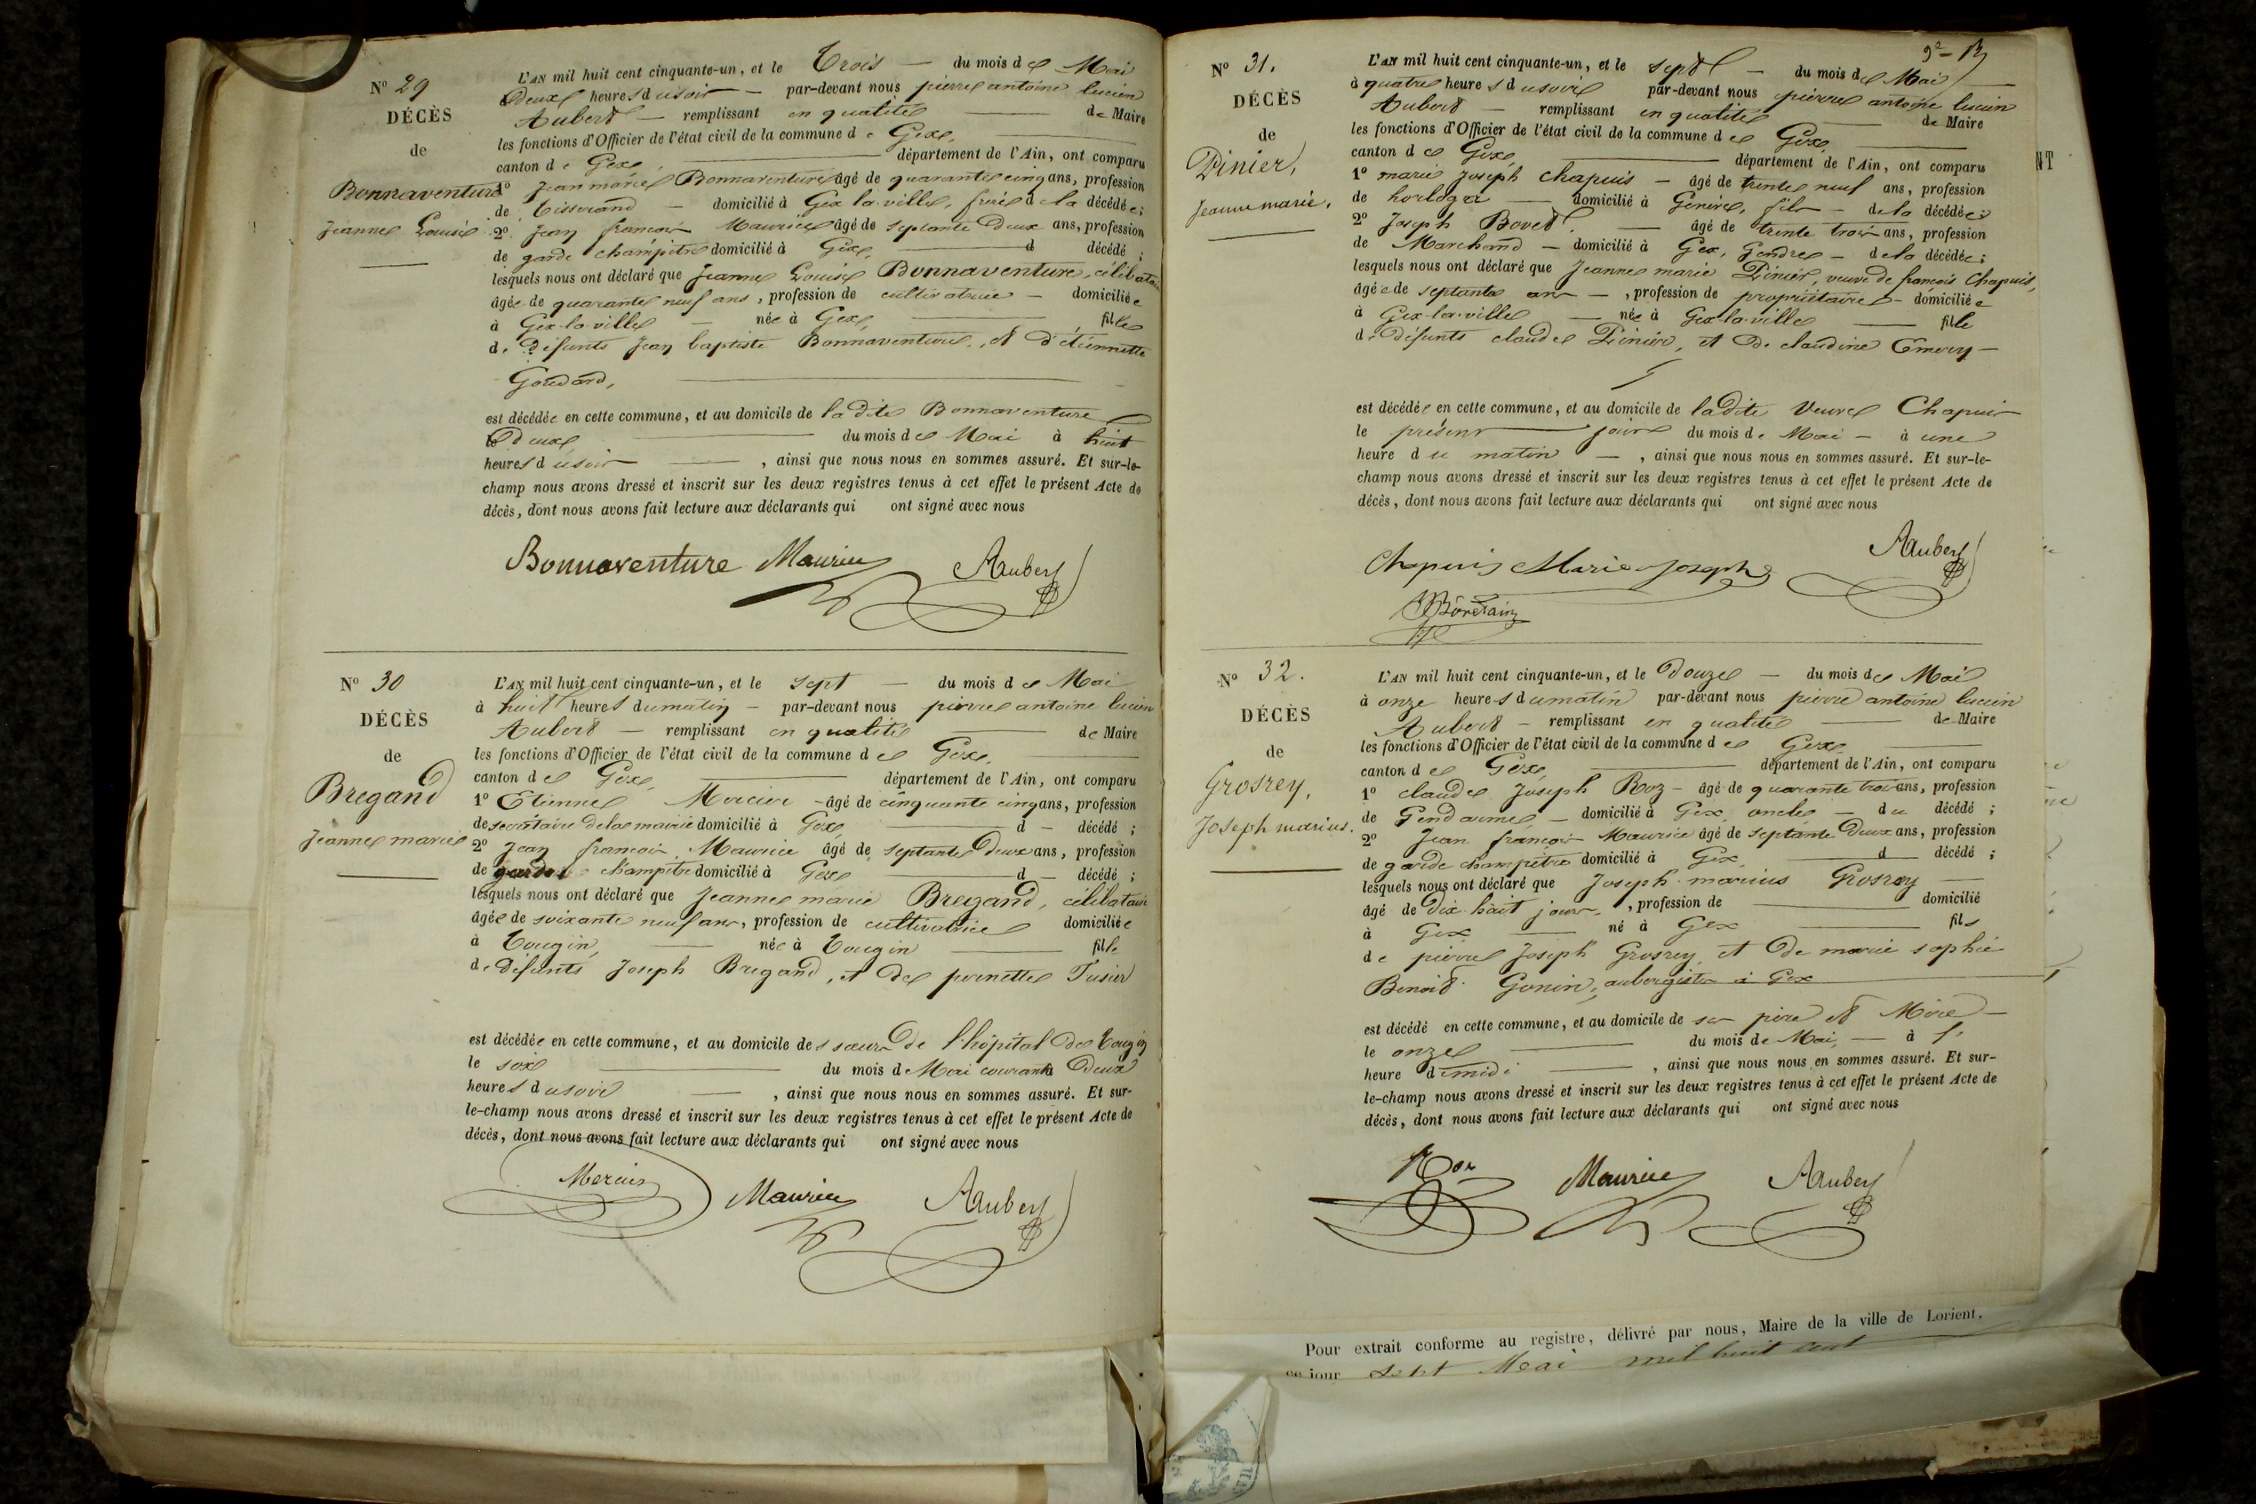 N° 29
DÉCÈS
de
Bonnaventure
Jeanne Louise
L'AN mil huit cent cinquante-un, et le Trois — du mois de Mai
à Deux heures du soir — par-devant nous pierre antoine lucien
Aubert — remplissant en qualité — de Maire
les fonctions d'Officier de l'état civil de la commune de Gex,
canton de Gex, — département de l'Ain, ont comparu
1° Jean marie Bonnaventure âgé de quarante cinq ans, profession
de tisserand — domicilié à Gex la ville, frère de la décédée;
2° Jean françois Maurice âgé de septante Deux ans, profession
de garde champêtre domicilié à Gex, — d décédé;
lesquels nous ont déclaré que Jeanne Louise Bonnaventure, célibataire
âgée de quarante neuf ans, profession de cultivatrice — domiciliée
à Gex-la-ville — née à Gex, — fille
de Défunts Jean baptiste Bonnaventure, et d'étiennette
Goudard,
est décédée en cette commune, et au domicile de la dite Bonnaventure
le Deux — du mois de Mai à huit
heures du soir — , ainsi que nous nous en sommes assuré. Et sur-le-
champ nous avons dressé et inscrit sur les deux registres tenus à cet effet le présent Acte de
décès, dont nous avons fait lecture aux déclarants qui ont signé avec nous
Bonnaventure Maurice Aubert
N° 30
DÉCÈS
de
Bregand
Jeanne marie
L'AN mil huit cent cinquante-un, et le sept — du mois de Mai
à huit heures du matin — par-devant nous pierre antoine lucien
Aubert — remplissant en qualité — de Maire
les fonctions d'Officier de l'état civil de la commune de Gex,
canton de Gex, — département de l'Ain, ont comparu
1° Etienne Mercier — âgé de cinquante cinq ans, profession
de secrétaire de la mairie domicilié à Gex — d — décédé;
2° Jean françois Maurice âgé de septante Deux ans, profession
de garde champêtre domicilié à Gex — d — décédé;
lesquels nous ont déclaré que Jeanne marie Bregand, célibataire
âgée de soixante neuf ans, profession de cultivatrice domiciliée
à Tougin, — née à Tougin — fille
de défunts Joseph Bregand, et de pernette
est décédée en cette commune, et au domicile des sœurs de l'hôpital de Tougin
le six — du mois de Mai courant à Deux
heures du soir — , ainsi que nous nous en sommes assuré. Et sur-
le-champ nous avons dressé et inscrit sur les deux registres tenus à cet effet le présent Acte de
décès, dont nous avons fait lecture aux déclarants qui ont signé avec nous
Mercier Maurice Aubert
N° 31.
DÉCÈS
de
Pinier,
Jeanne marie,
L'AN mil huit cent cinquante-un, et le sept — du mois de Mai
à quatre heures du soir par-devant nous pierre antoine lucien
Aubert — remplissant en qualité — de Maire
les fonctions d'Officier de l'état civil de la commune de Gex
canton de Gex, — département de l'Ain, ont comparu
1° marie Joseph chapuis — âgé de trente neuf ans, profession
de horloger — domicilié à Genève, fils — de la décédée;
2° Joseph Bovet. — âgé de trente trois ans, profession
de Marchand — domicilié à Gex, Gendre — de la décédée;
lesquels nous ont déclaré que Jeanne marie Pinier, veuve de françois Chapuis,
âgée de septante ans —, profession de propriétaire — domiciliée
à Gex-la-ville — née à Gex-la-ville — fille
de Défunts claude Pinier, et De claudine Emery —
est décédée en cette commune, et au domicile de ladite Veuve Chapuis
le présent — jour du mois de Mai — à une
heure du matin — , ainsi que nous nous en sommes assuré. Et sur-le-
champ nous avons dressé et inscrit sur les deux registres tenus à cet effet le présent Acte de
décès, dont nous avons fait lecture aux déclarants qui ont signé avec nous
Chapuis Marie Joseph Aubert
N° 32.
DÉCÈS
de
Grosrey,
Joseph marius.
L'AN mil huit cent cinquante-un, et le Douze — du mois de Mai
à onze heures du matin par-devant nous pierre antoine lucien
Aubert — remplissant en qualité — de Maire
les fonctions d'Officier de l'état civil de la commune de Gex
canton de Gex, — département de l'Ain, ont comparu
1° claude Joseph Roz — âgé de quarante trois ans, profession
de Gendarme — domicilié à Gex, oncle — du décédé;
2° Jean françois Maurice âgé de septante Deux ans, profession
de garde champêtre domicilié à Gex — d décédé;
lesquels nous ont déclaré que Joseph marius Grosrey
âgé de Dix-huit jours, profession de — domicilié
à Gex — né à Gex — fils
de pierre Joseph Grosrey, et De marie sophie
Benoit Gonin, aubergiste à Gex
est décédé en cette commune, et au domicile de ses père et Mère —
le onze — du mois de Mai, — à
heure de midi — , ainsi que nous nous en sommes assuré. Et sur-
le-champ nous avons dressé et inscrit sur les deux registres tenus à cet effet le présent Acte de
décès, dont nous avons fait lecture aux déclarants qui ont signé avec nous
Roz Maurice Aubert
Pour extrait conforme au registre, délivré par nous, Maire de la ville de Lorient,
ce jour sept Mai mil huit cent
NT